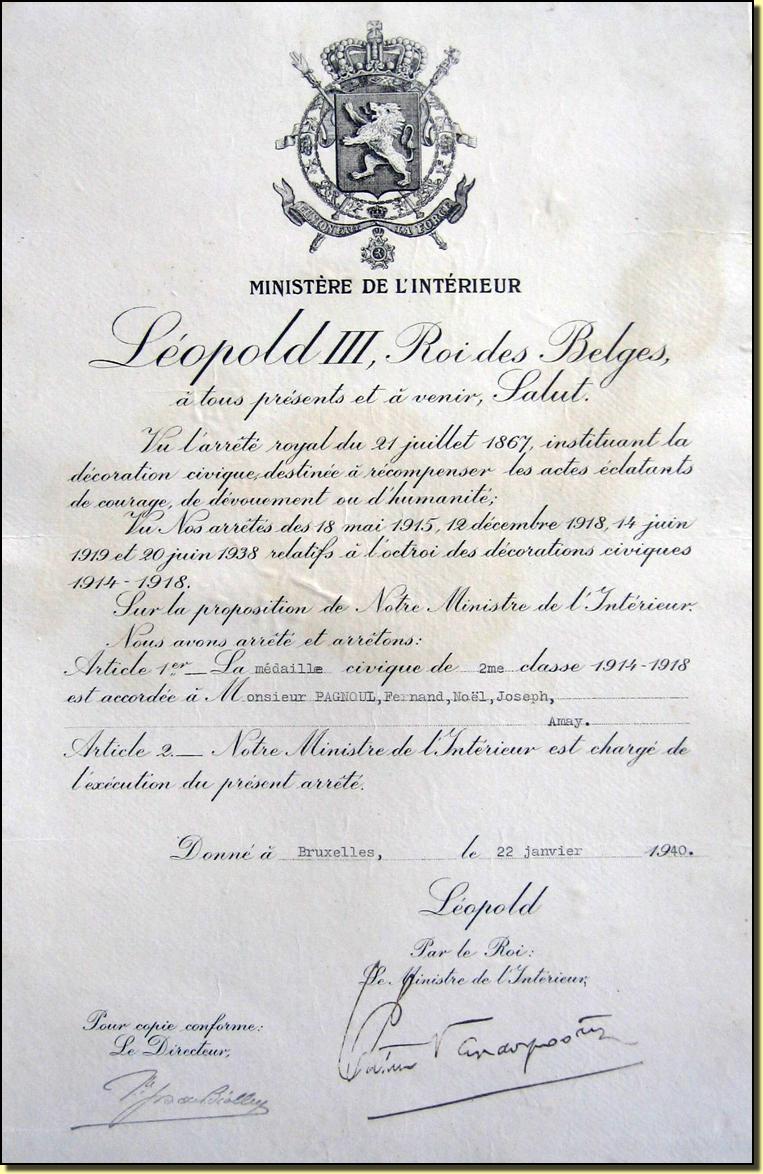 L'UNION FAIT LA FORCE
MINISTÈRE DE L'INTÉRIEUR
Léopold III, Roi des Belges,
à tous présents et à venir, Salut.
Vu l'arrêté royal du 21 juillet 1867, instituant la
décoration civique, destinée à récompenser les actes éclatants
de courage, de dévouement ou d'humanité;
Vu Nos arrêtés des 18 mai 1915, 12 décembre 1918, 14 juin
1919 et 20 juin 1938 relatifs à l'octroi des décorations civiques
1914-1918.
Sur la proposition de Notre Ministre de l'Intérieur.
Nous avons arrêté et arrêtons:
Article 1er_ La médaille civique de 2me classe 1914-1918
est accordée à Monsieur PAGNOUL,Fernand,Noël,Joseph,
Amay.
Article 2._ Notre Ministre de l'Intérieur est chargé de
l'exécution du présent arrêté.
Donné à Bruxelles, le 22 janvier 1940.
Léopold
Par le Roi:
Le Ministre de l'Intérieur,
Pour copie conforme:
Le Directeur,